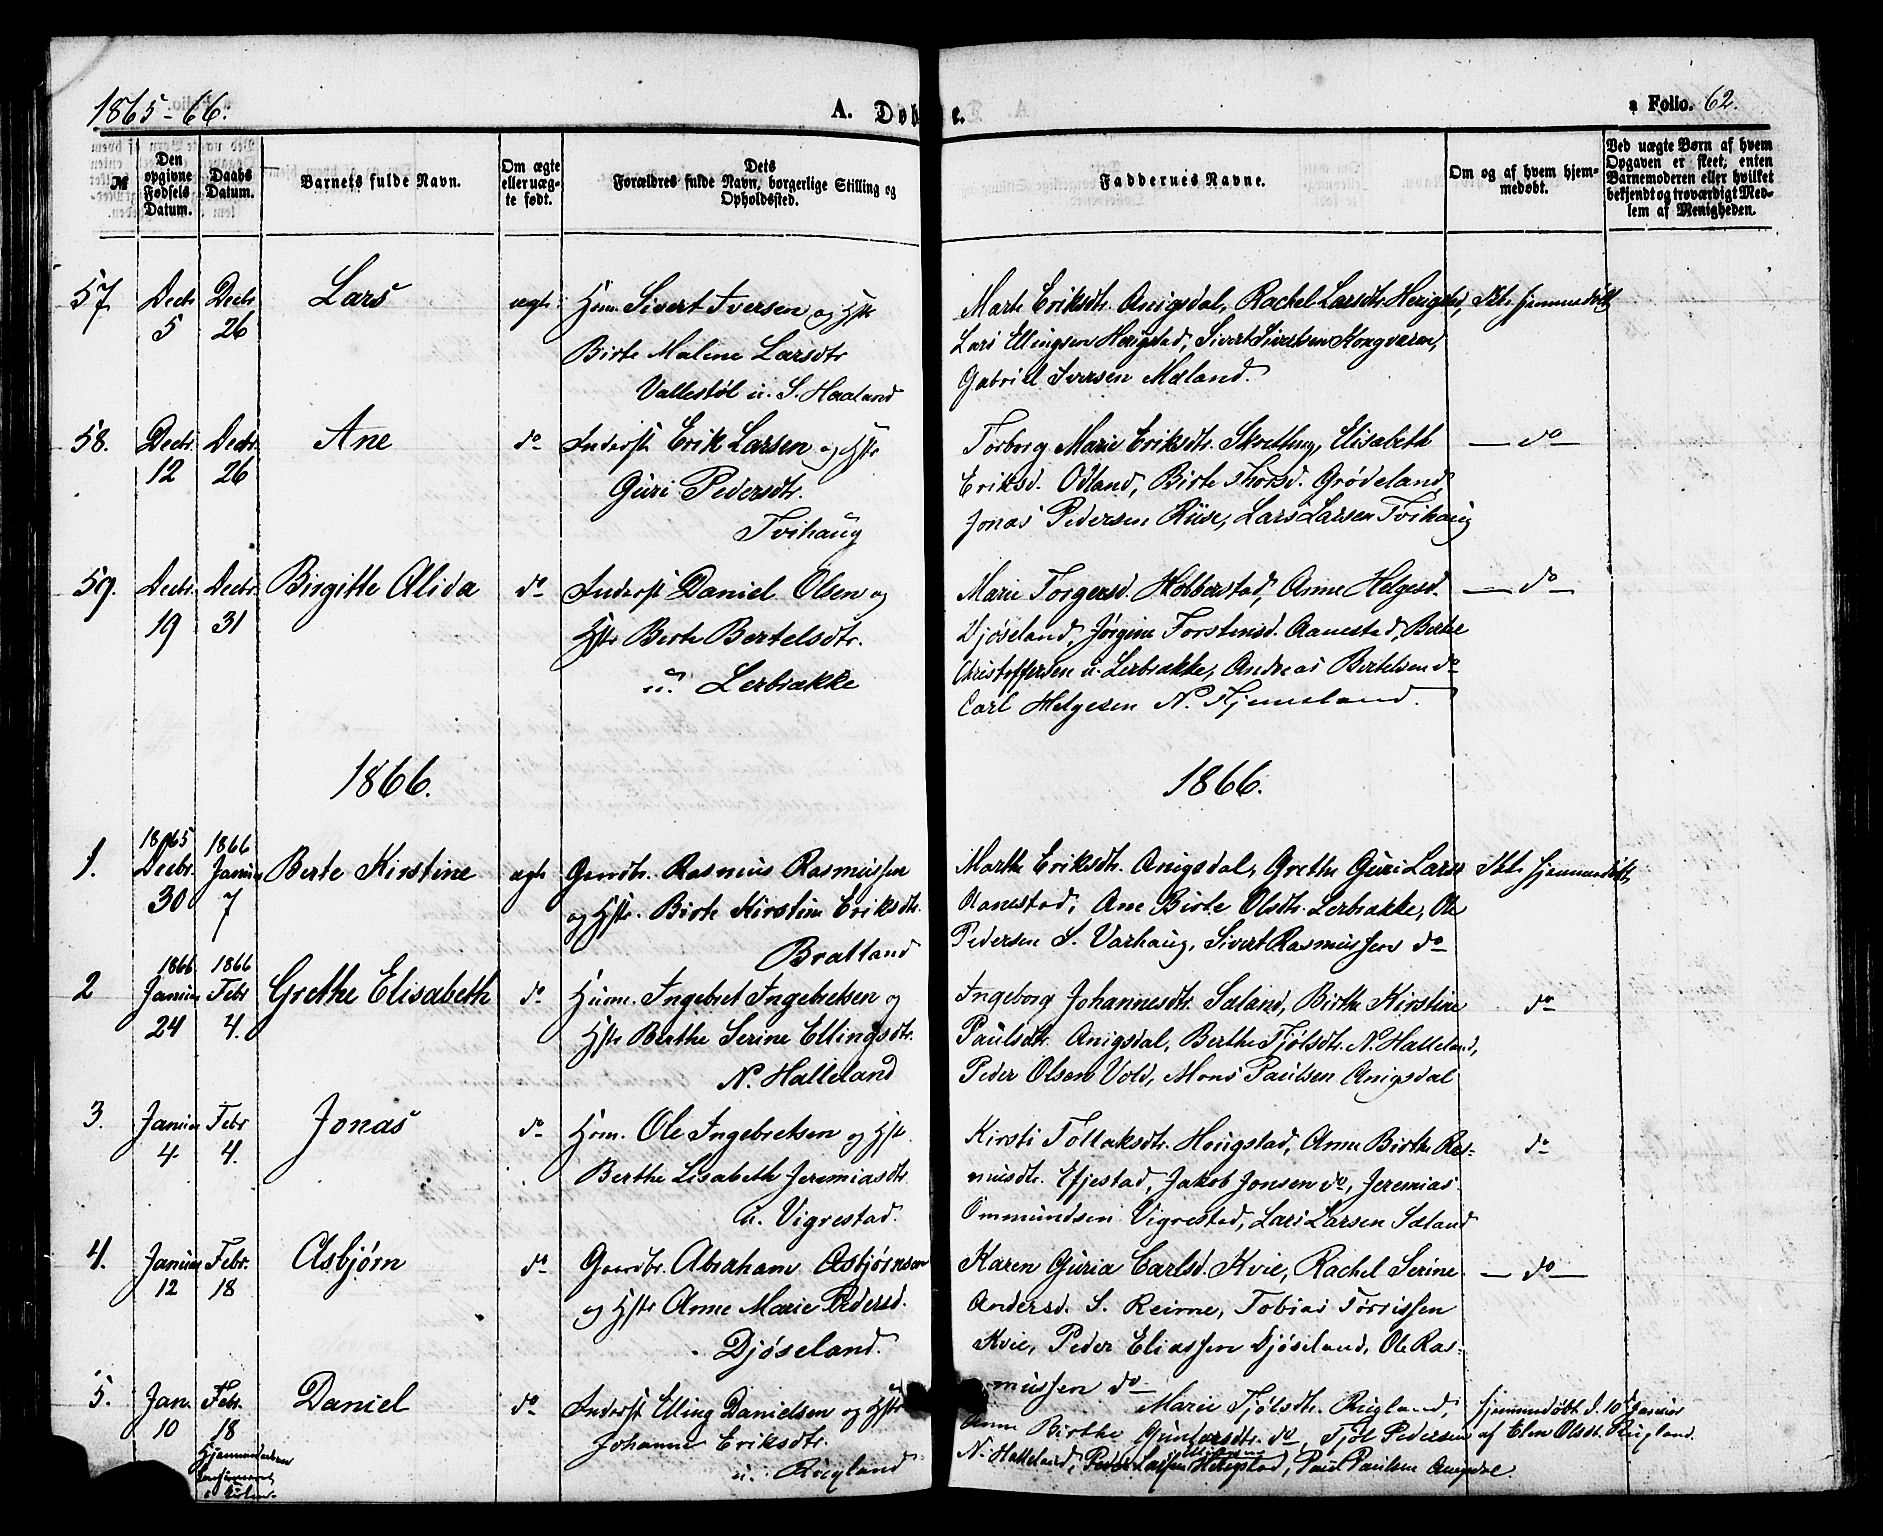 1865-66.
A. Døb
e.
a Folio. 62.
№
Den opgivne Fødsels Datum.
Daabs Datum.
Barnets fulde Navn.
Om ægte eller uægte født.
Dets Forældres fulde Navn, borgerlige Stilling og Opholdssted.
Faddernes Navne.
Om og af hvem hjemmedøbt.
Ved uægte Børn af hvem Opgaven er skeet, enten Barnemoderen eller hvilket bekjendt og troværdigt Medlem af Menigheden.
57. Decbr 5 Decbr 26 Lars ægte
Hum. Sivert Iversen og Hstr
Birte Malene Larsdtr
Vallestøl u. S. Haaland
Marte Eriksdtr. Anigsdal, Rachel Larsdtr. Herigstad,
Lars Ellingsen Herigstad, Sivert Sivertsen Kongvarn,
Gabriel Iversen Mæland.
Ikke hjemmedøbt
58. Decbr. 12 Decbr. 26 Ane do
Inderst Erik Larsen og Hstr
Guri Pedersdtr.
Tvihaug
Torborg Marie Eriksdtr. Skretting, Elisabeth
Eriksd. Odland, Birte Thorsd. Grødeland,
Jonas Pedersen Riise, Lars Larsen Tvihaug
— do —
59. Decbr. 19 Decbr. 31 Birgitte Alida do
Inderst Daniel Olsen og
Hstr Berte Bertelsdtr.
u. Lerbrække
Marie Torgersd. Hobberstad, Anne Helgesd.
Djøseland, Jørgine Torstensd. Aanestad, Berte
Christoffersen u. Lerbrække, Andreas Bertelsen do
Carl Helgesen N. Tjemsland.
— do —
1866.
1866.
1. 1865 Decbr. 30 1866 Januar 7 Berte Kirstine ægte
Gaardbr. Rasmus Rasmussen
og Hstr. Birte Kirstine Eriksdtr.
Bratland
Marthe Eriksdtr. Anigsdal, Grethe Guri Larsd
Aanestad, Ane Birte Olsdtr. Lerbrække, Ole
Pedersen S. Varhaug, Sivert Rasmussen do
Ikke hjemmedøbt
2 1866 Januar 24 1866 Febr 4. Grethe Elisabeth do
Huum. Ingebret Ingebretsen og
Hstr Berthe Serine Ellingsdtr.
N. Halleland
Ingeborg Johannesdtr. Sæland, Birthe Kirstine
Paulsdtr. Anigsdal, Berthe Tjølsdtr. N. Halleland,
Peder Olsen Vold, Mons Paulsen Anigsdal
do
3. Januar 4 Febr 4. Jonas do
Hum. Ole Ingebretsen og Hstr.
Berthe Lisabeth Jeremiasdtr.
u. Vigrestad.
Kirsti Tollaksdtr. Herigstad, Anne Birthe Ras-
musdtr. Efjestad, Jakob Jonsen do, Jeremias
Ommundsen Vigrestad, Lars Larsen Sæland
do
4. Januar 12 Febr. 18 Asbjørn do
Gaardbr. Abraham Asbjørnsen
og Hstr Anne Marie Pedersd.
Djøseland.
Karen Guria Carlsd. Kvie, Rachel Serine
Andersd. S. Reime, Tobias Tørrissen
Kvie, Peder Eliassen Djøseland, Ole Ras-
mussen do
— do —
5. Jan. 10 Febr. 18 Daniel do
Hjemmedaaben
Inderst Elling Danielsen og Hstr
Johanne Eriksdtr.
u. Rugland
Marie Tjølsdtr. Rugland,
Anne Birthe Gunvorsdtr. do, Tjøl Pedersen
N. Halleland, Peder Larsen Herigstad, Paul Paulsen Anigsdal
hjemmedøbt d. 10 Januar
af Elen Olsdt. Rugland.